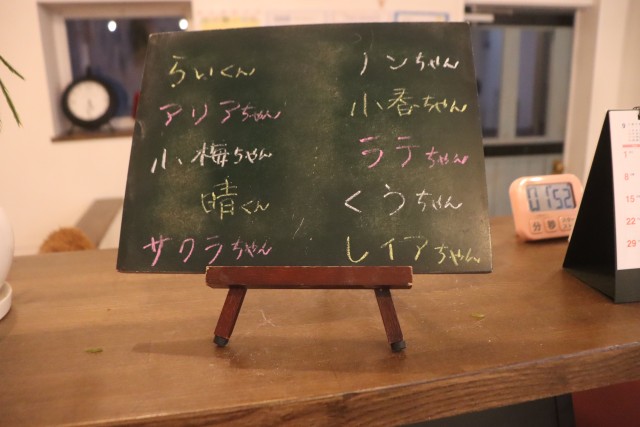 らいくん
アリアちゃん
小梅ちゃん
晴くん
サクラちゃん
ノンちゃん
小春ちゃん
ララちゃん
くうちゃん
レイアちゃん
01 52
分 秒
1
8
15
22
29